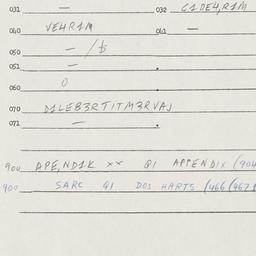 031 — 032 G1DE4,R1M
040 VE4R1M 041 —
050 — /
051 —
060 0
070 D1LEB3RTITM3RVAJ
071 —
900 APE,ND1K xx Q1 APPENDIX (904
900 SARC Q1 DOS HARTS (466 (467